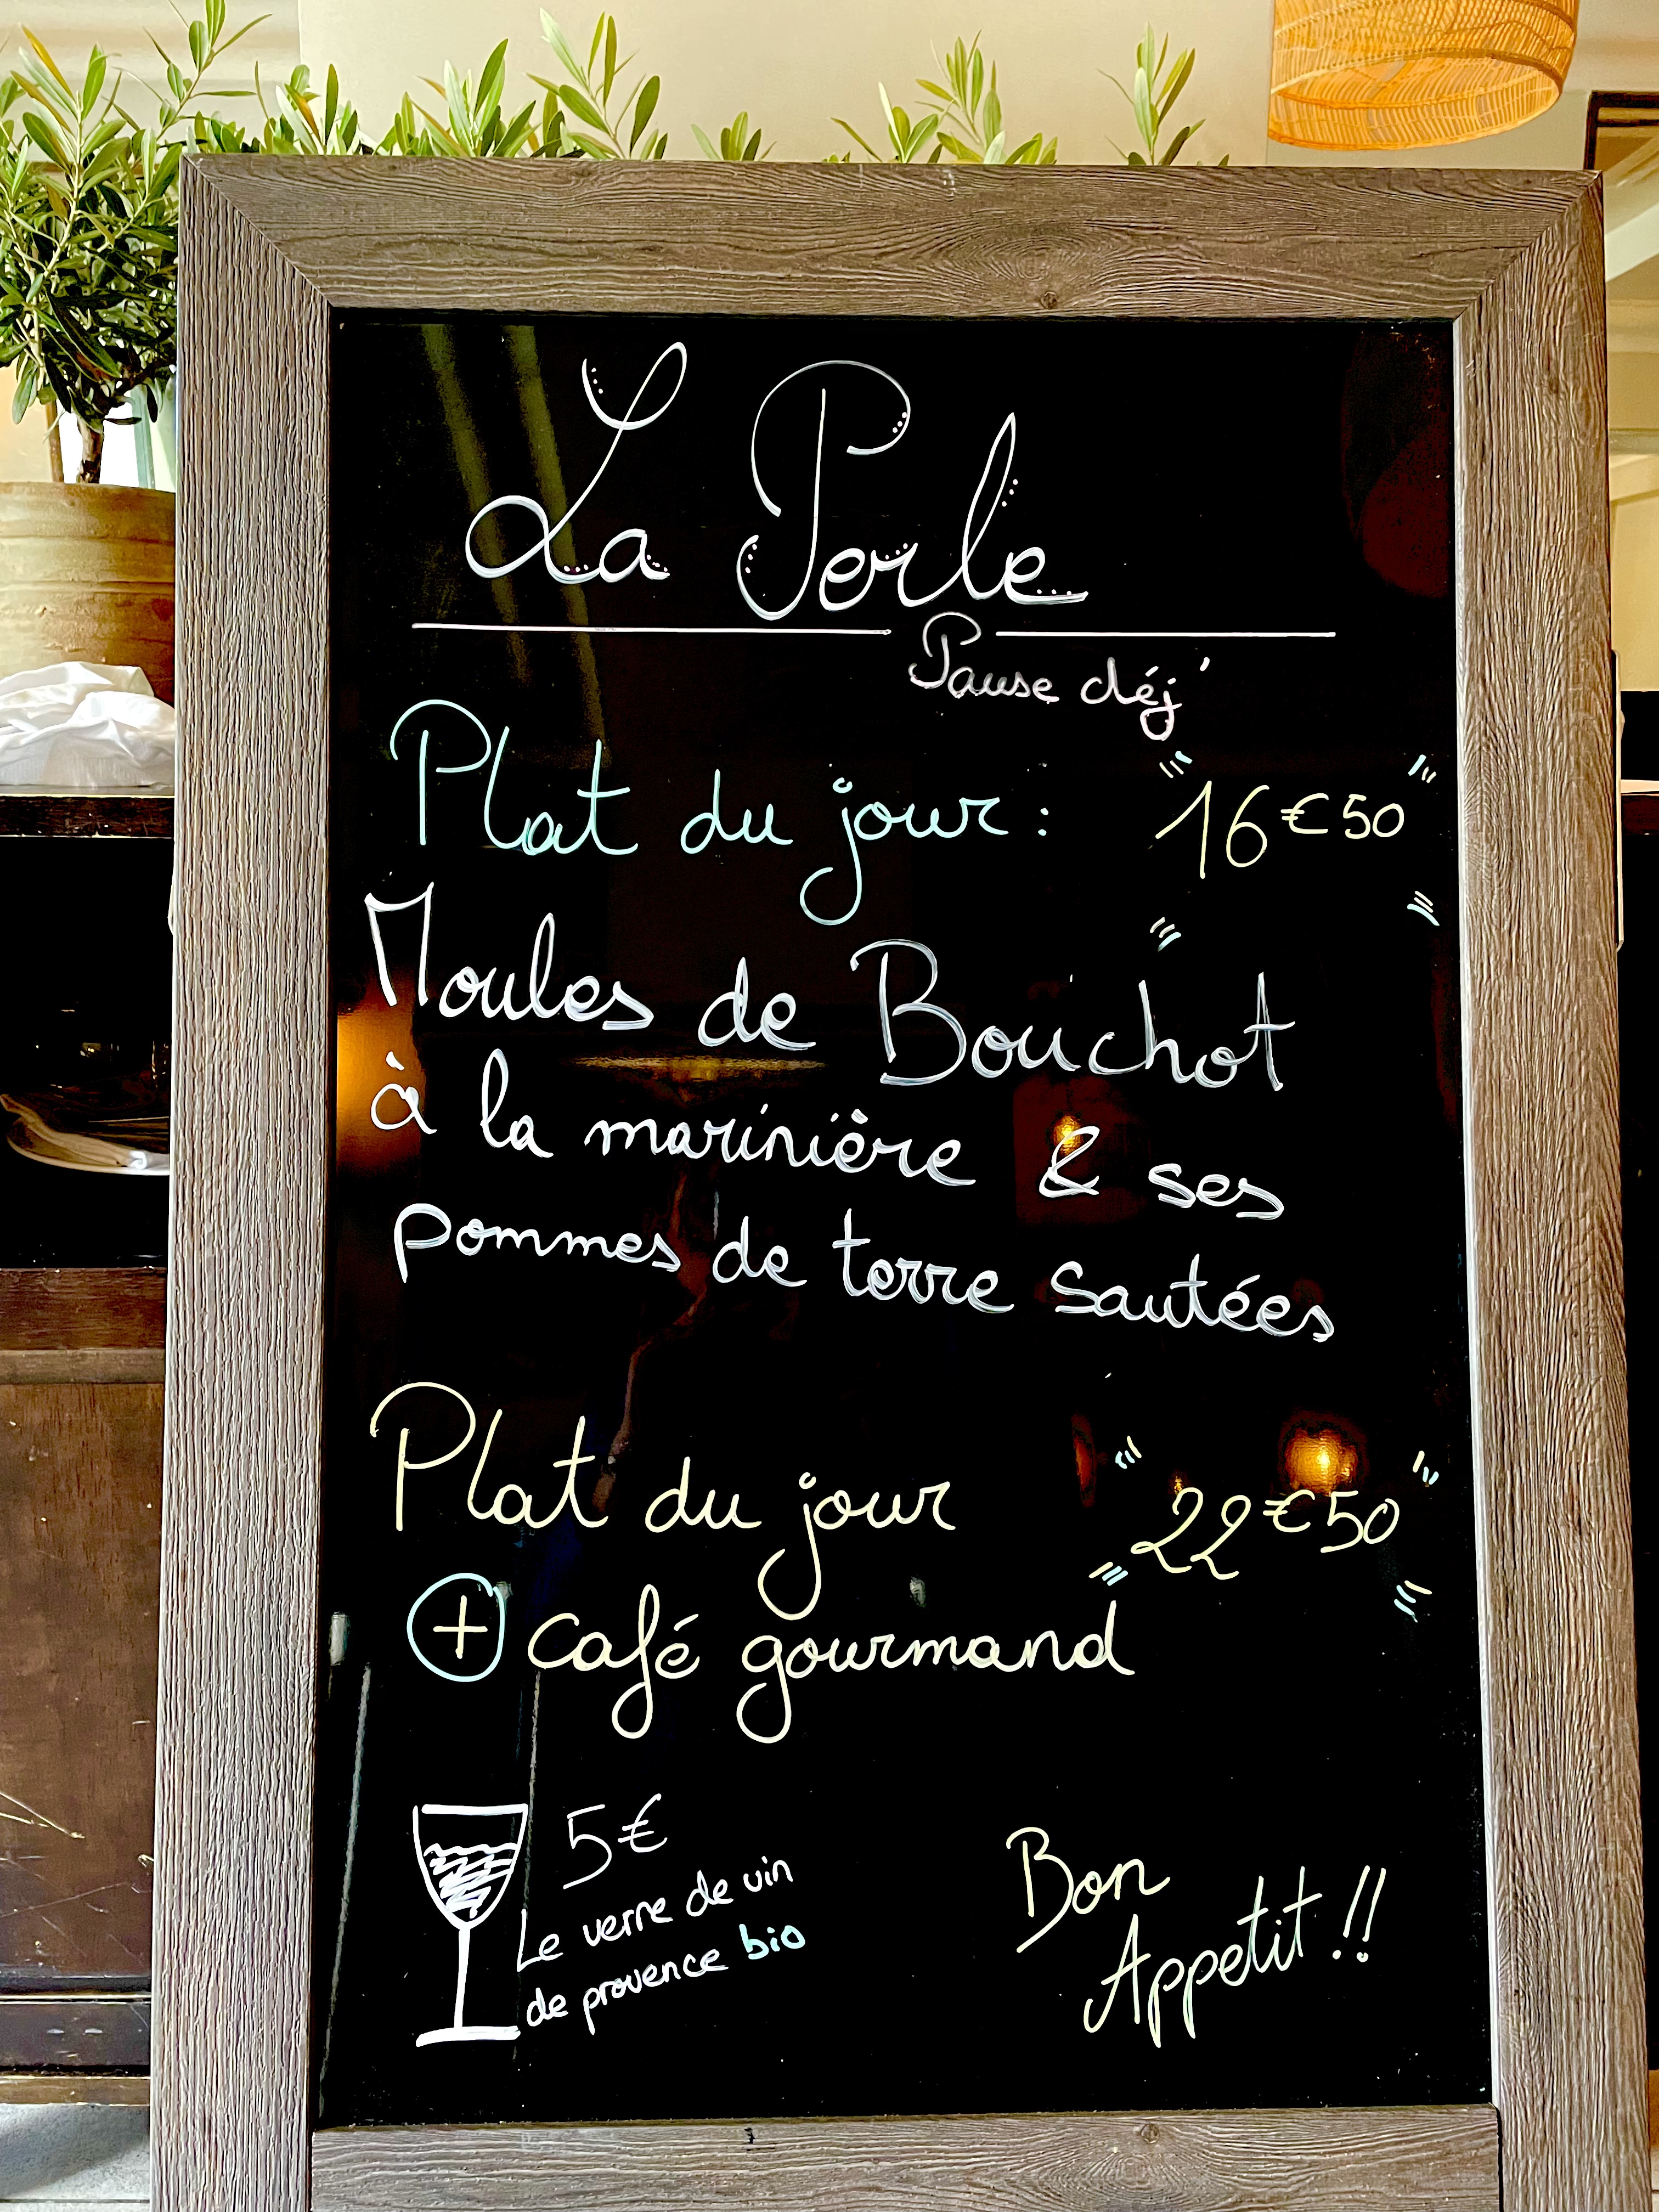 La Perle
Pause déj'
Plat du jour : 16€50
Moules de Bouchot
à la marinière & ses
pommes de terre sautées
Plat du jour 22€50
+ café gourmand
5€
Le verre de vin
de provence bio
Bon
Appetit !!